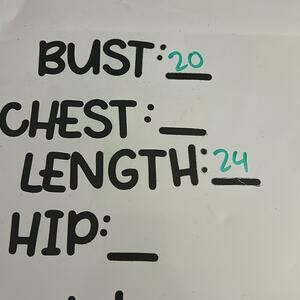 BUST: 20
CHEST: __
LENGTH: 24
HIP: __